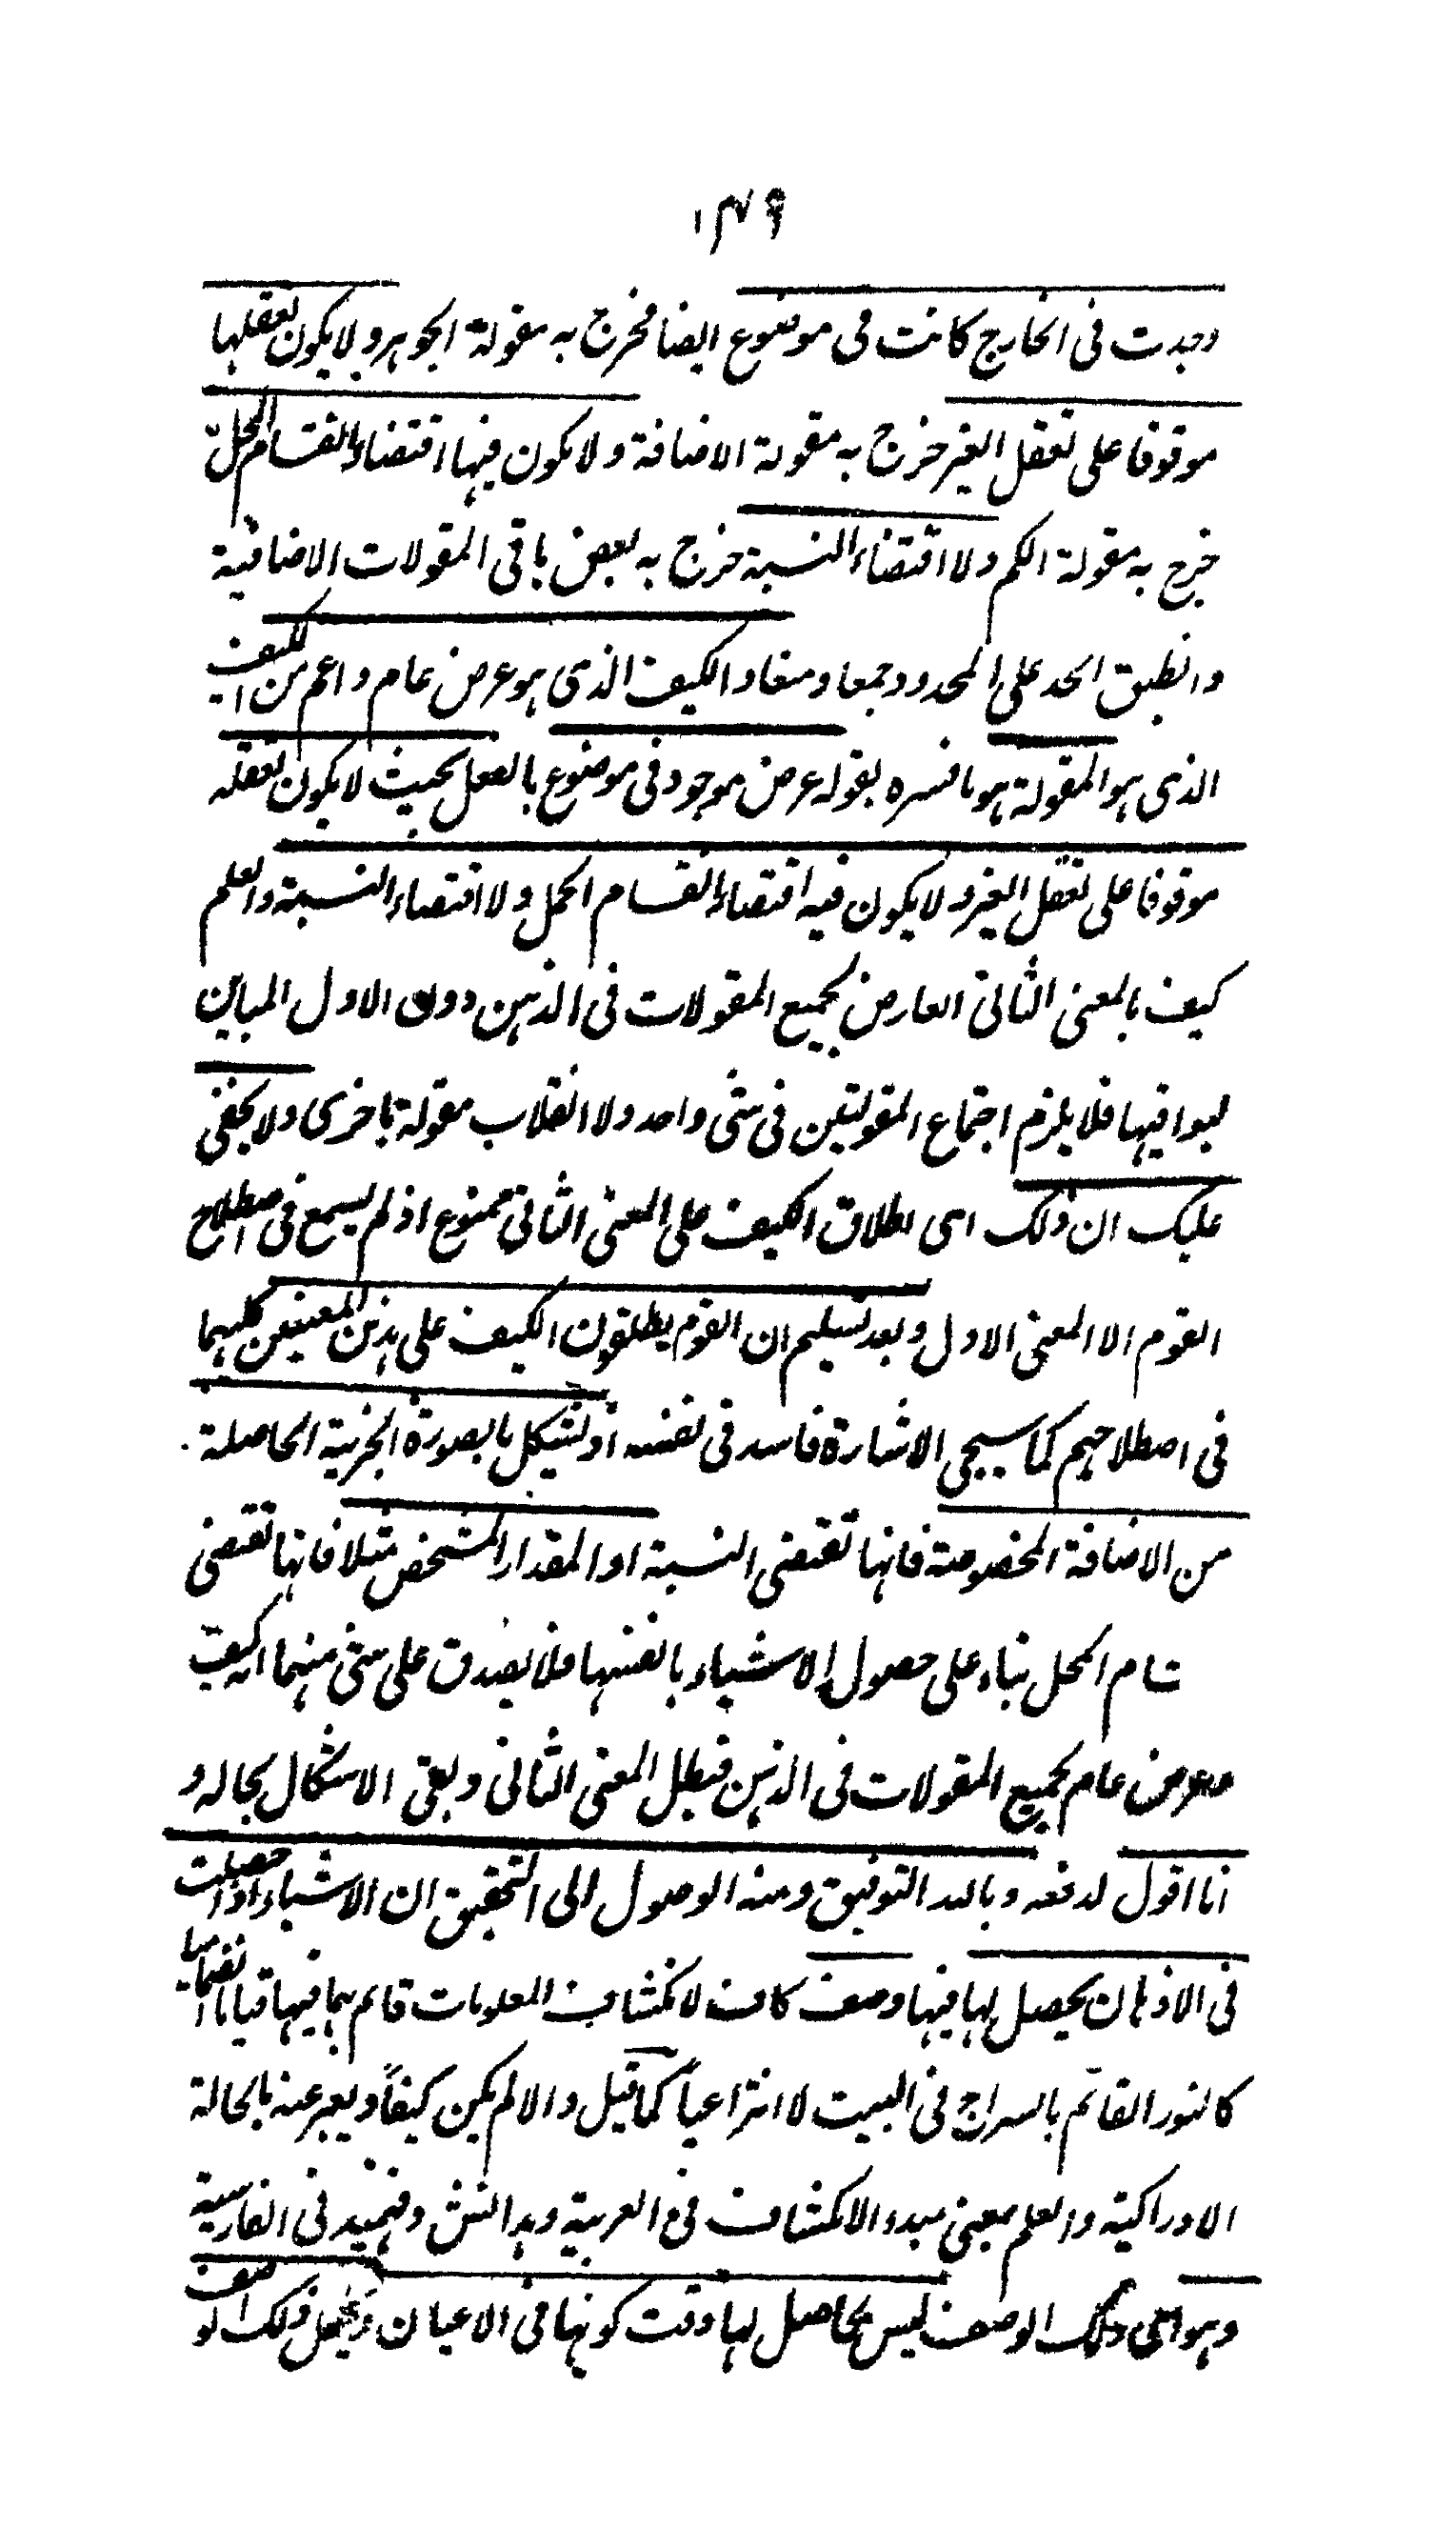 ١٣٧٩
وجدت فى الخارج كانت فى موضوع ايضا فخرج به مقولة الجوهر ولا يكون تعقلها
موقوفا على تعقل الغير خرج به مقولة الاضافة ولا يكون فيها اقتضاء انقسام المحل
خرج به مقولة الكم ولا اقتضاء النسبة خرج به بعض باقى المقولات الاضافية
وانطبق الحد على المحدود جمعا ومنعا والكيف الذى هو عرض عام واعم من الكيف
الذى هو المقولة هو ما فسره بقوله عرض موجود فى موضوع بالفعل بحيث لا يكون تعقله
موقوفا على تعقل الغير ولا يكون فيه اقتضاء انقسام المحل ولا اقتضاء النسبة والعلم
كيف بالمعنى الثانى العارض لجميع المقولات فى الذهن دون الاول المباين
لبواقيها فلا يلزم اجتماع المقولتين فى شئ واحد ولا انقلاب مقولة باخرى ولا يخفى
عليك ان ذلك اى اطلاق الكيف على المعنى الثانى ممنوع اذ لم يسمع فى اصطلاح
القوم الا المعنى الاول وبعد تسليم ان القوم يطلقون الكيف على هذين المعنيين كليهما
فى اصطلاحهم كما سيجى الاشارة فاسد فى نفسه اذ تشكل بالصورة الجزئية الحاصلة
من الاضافة المخصوصة فانها تقتضى النسبة او المقدار المشخص مثلا فانها تقتضى
سام المحل بناء على حصول الاشياء بانفسها فلا يصدق على شئ منهما انه كيف
عرض عام لجميع المقولات فى الذهن فبطل المعنى الثانى وبقى الاشكال بحاله و
انا اقول لدفعه وبالله التوفيق ومنه الوصول الى التحقيق ان الاشياء اذا حصلت
فى الاذهان يحصل لها فيها وصف كاف لانكشاف المعلومات قائم بما فيها قياما انضماميا
كالنور القائم بالسراج فى البيت لا انتزاعياً كما قيل والا لم يكن كيفاً ويعبر عنه بالحالة
الادراكية والعلم بمعنى مبدء الانكشاف فى العربية وبدانش وفهميد فى الفارسية
وهو اى ذلك الوصف ليس بحاصل لها وقت كونها فى الاعيان ويحمل ذلك الوصف